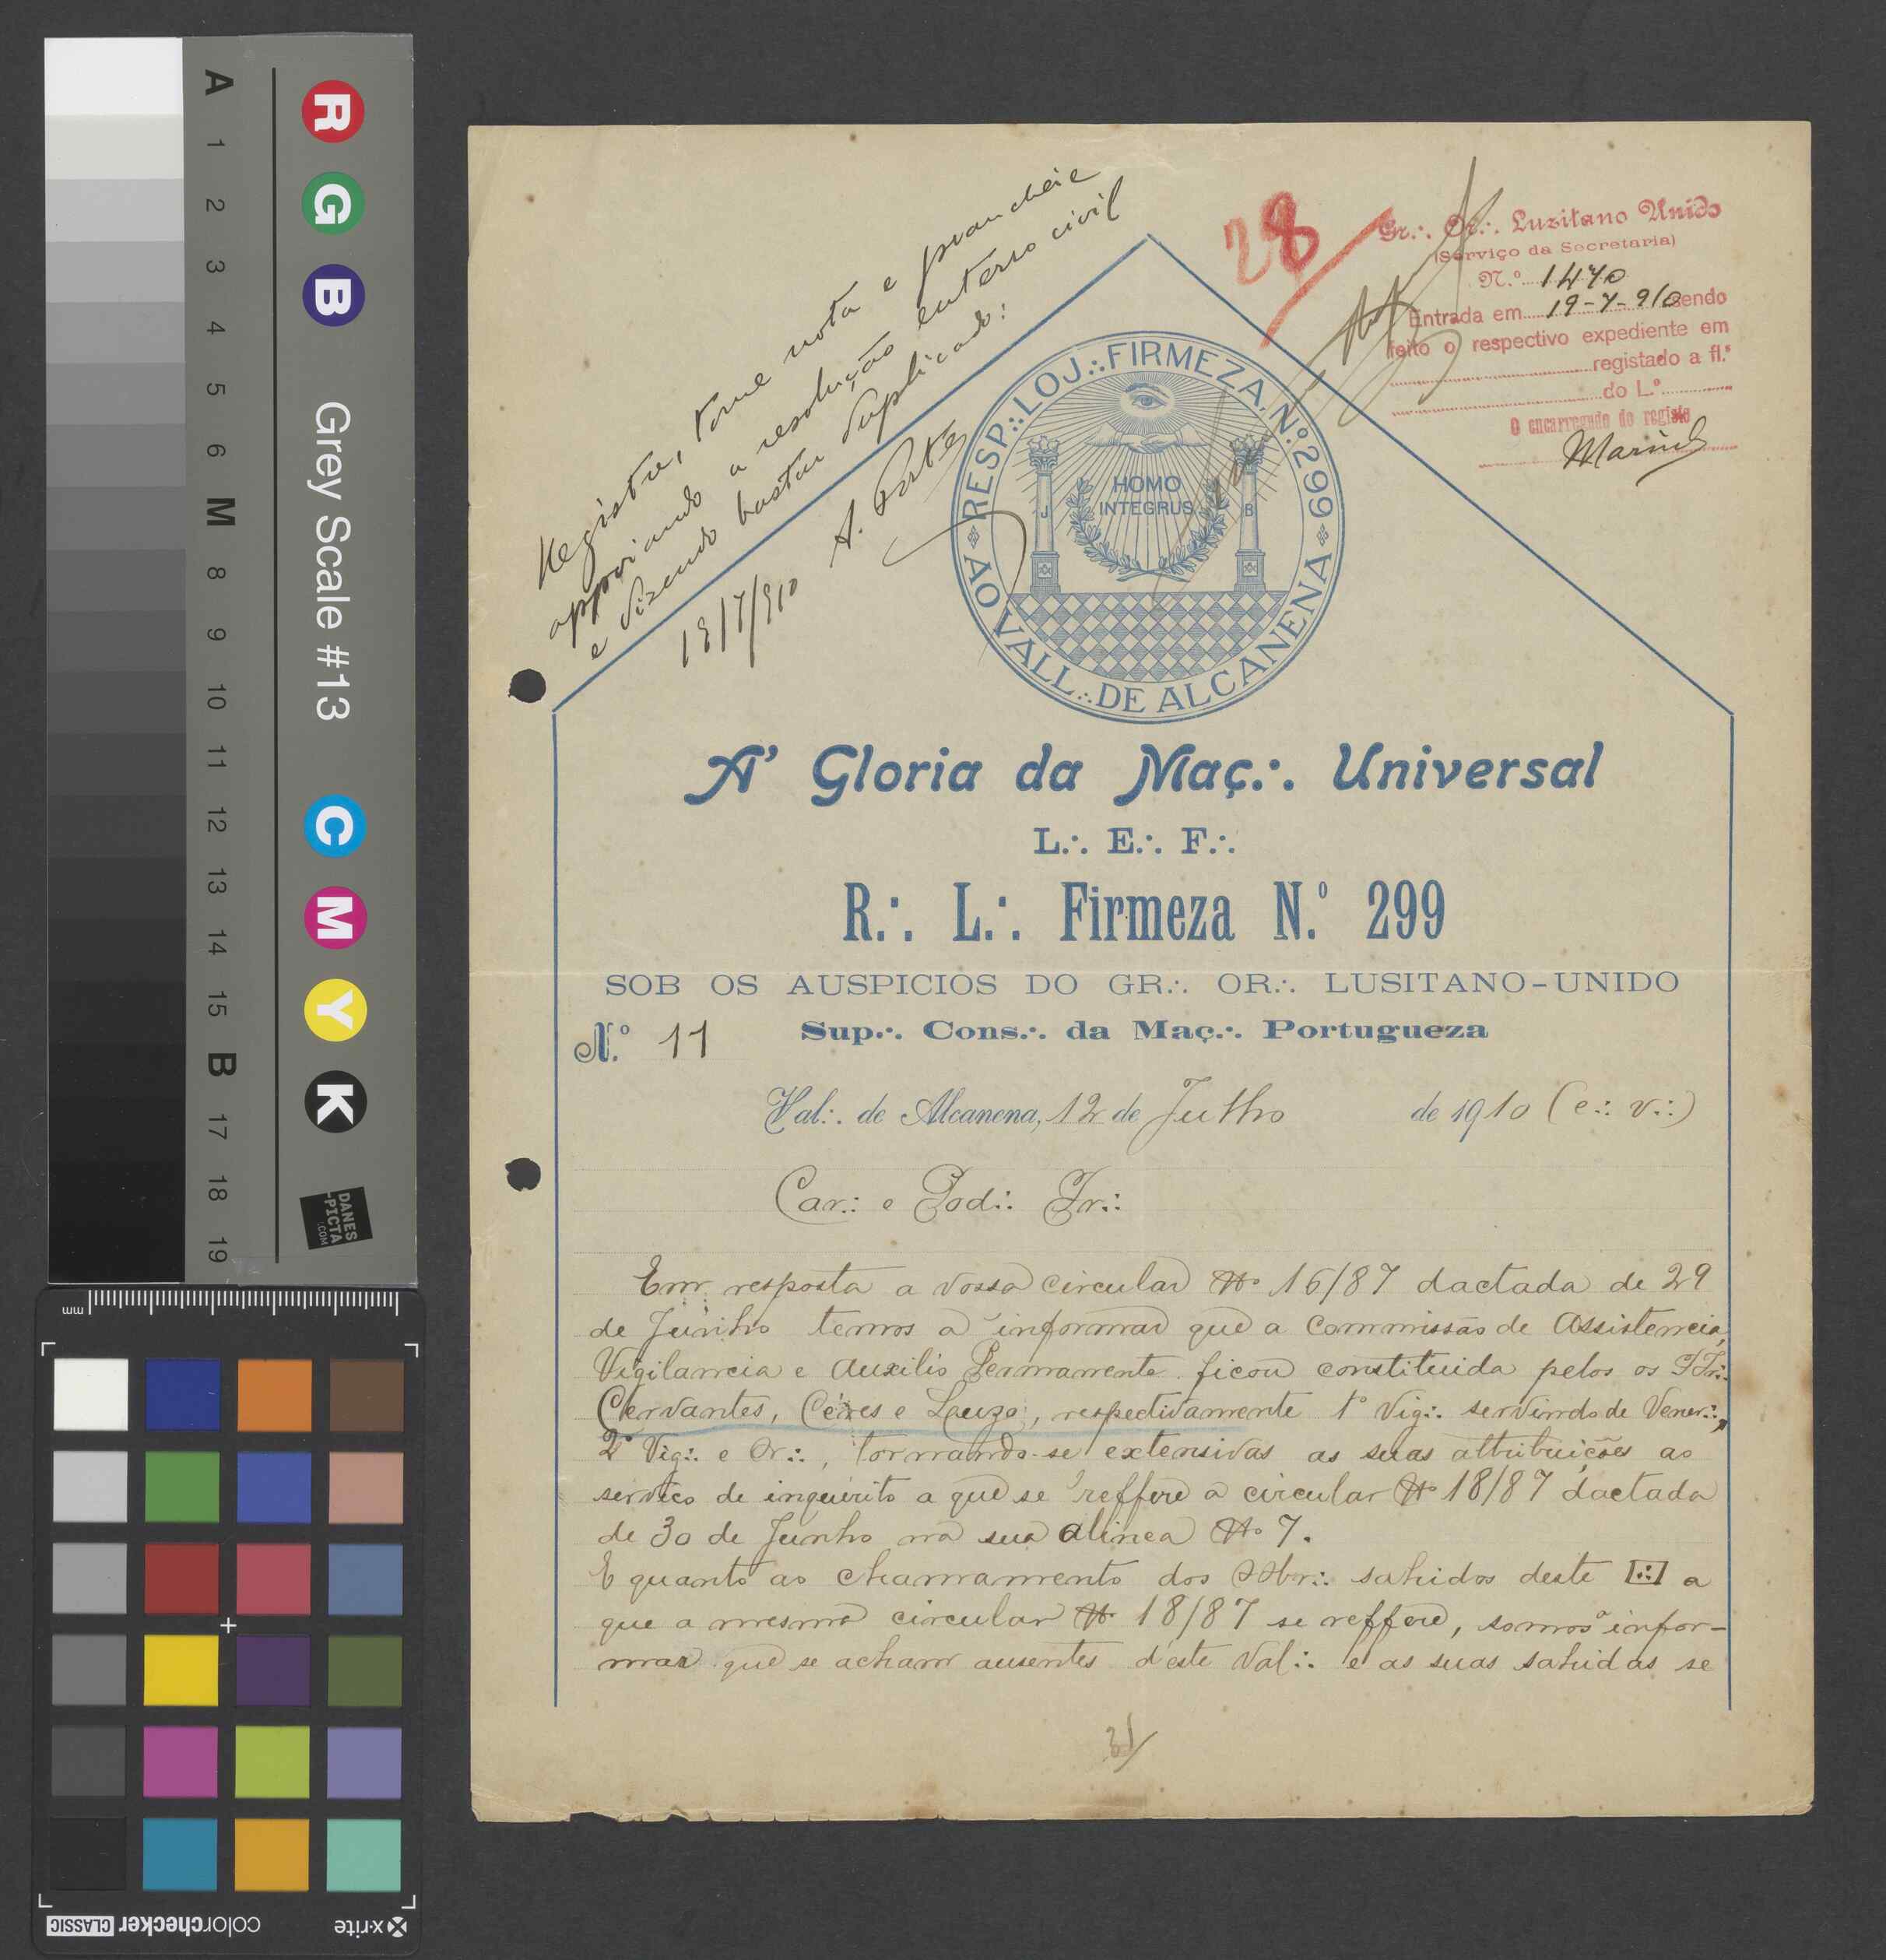 Registe, tome nota e prancheie
appoiando a resolução enterro civil
e dizendo bastar duplicado:
A. Porto
28
Gr.·. Or.·. Luzitano Unido
(Serviço da Secretaria)
N.º 1470
Entrada em 19-7-910 sendo
feito o respectivo expediente em
registado a fl.ª
do L.º
O encarregado do registo
RESP.·. LOJ.·. FIRMEZA, N.º 299
AO VALL.·. DE ALCANENA
HOMO
INTEGRUS
J
B
A' Gloria da Maç.·. Universal
L.·. E.·. F.·.
R.·. L.·. Firmeza N.º 299
SOB OS AUSPICIOS DO GR.·. OR.·. LUSITANO-UNIDO
N.º 11 Sup.·. Cons.·. da Maç.·. Portugueza
Val.·. de Alcanena, 12 de Julho de 1910 (e.·. v.·.)
Car.·. e Pod.·. Ir.·.
Em resposta a vossa circular Nº 16/87 dactada de 29
de Junho temos a informar que a Commissão de Assistencia,
Vigilancia e Auxilio Permanente ficou constituida pelos os IIr.·.
Cervantes, Céres e Lauzo, respectivamente 1º Vig.·. servindo de Vener.·.,
2º Vig.·. e Or.·., tornando-se extensivas as suas attribuições ao
serviço de inquerito a que se reffere a circular Nº 18/87 dactada
de 30 de Junho na sua alinea Nº 7.
E quanto ao chamamento dos OObr.·. sahidos deste [.·.] a
que a mesma circular Nº 18/87 se reffere, somos a infor-
mar que se acham ausentes d'este Val.·. e as suas sahidas se
31
A
1
2
3
4
5
6
M
8
9
10
11
12
13
14
15
B
17
18
19
R G B
Grey Scale #13
C M Y K
DANES
-PICTA
.COM
mm
x-rite
colorchecker CLASSIC